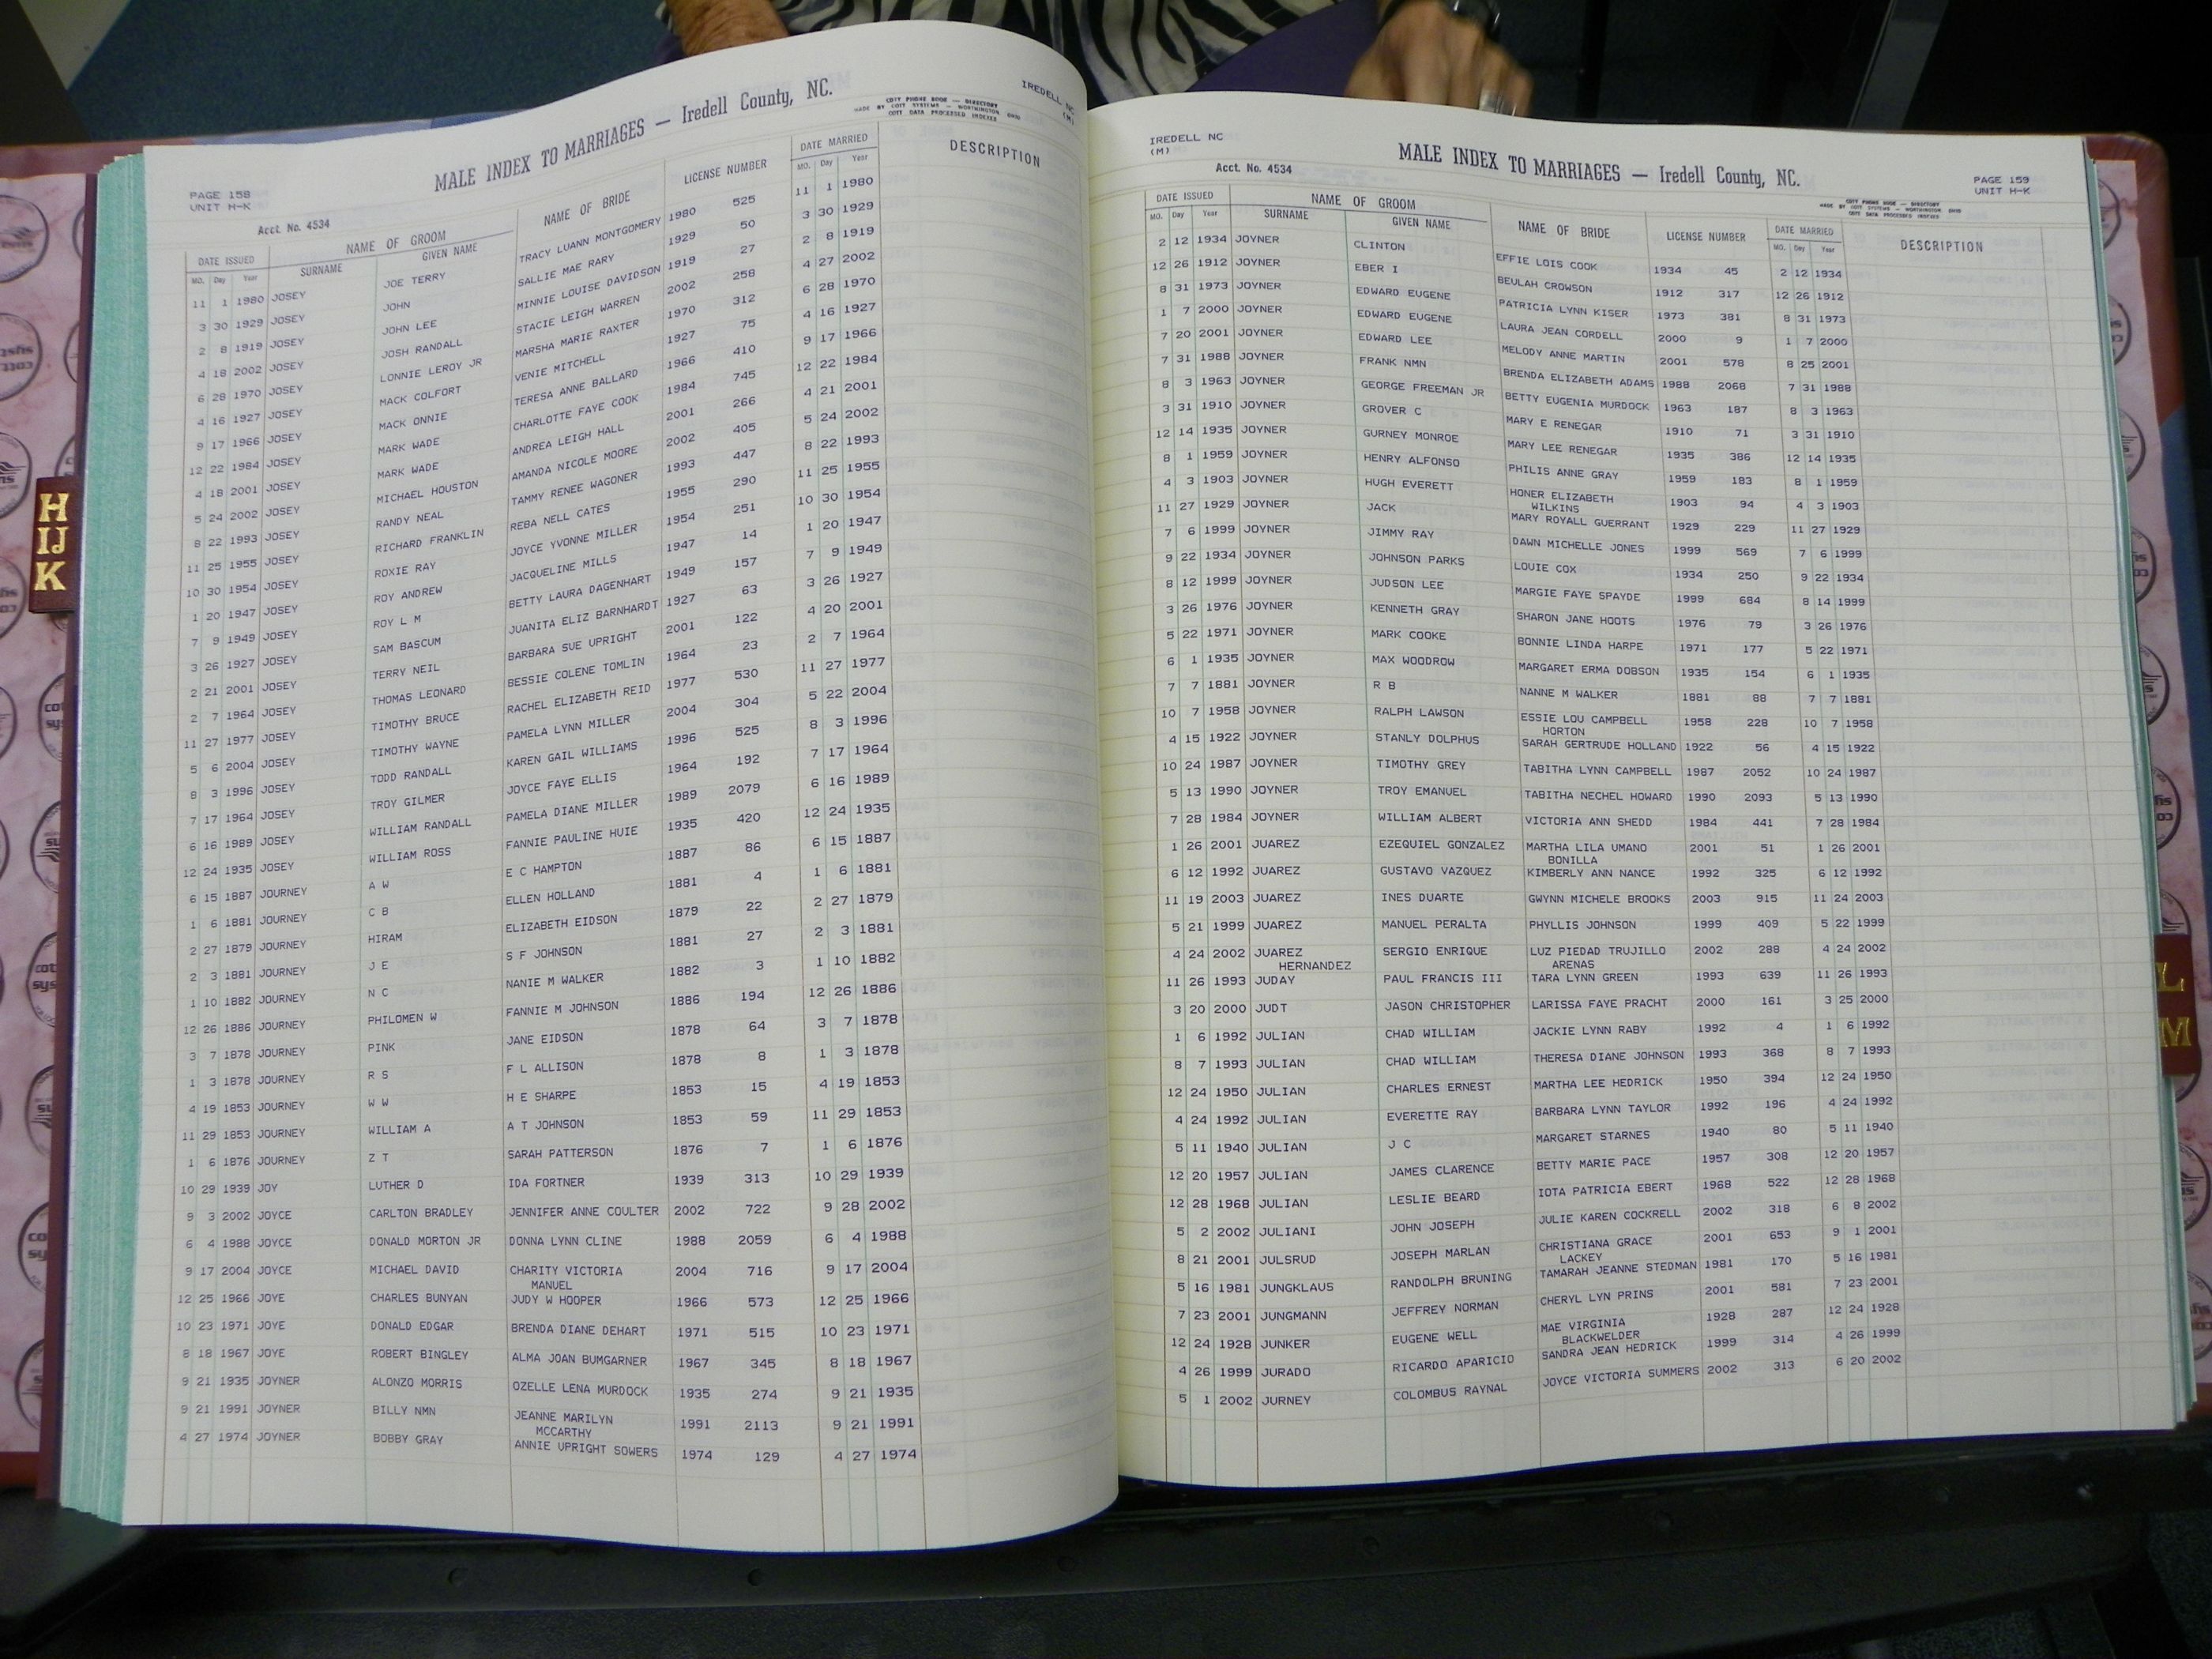 IREDELL NC
(M)
MALE INDEX TO MARRIAGES — Iredell County, NC.
COTT PHONE BOOK — DIRECTORY
MADE BY COTT SYSTEMS — WORTHINGTON OHIO
COTT DATA PROCESSED INDEXES
PAGE 158
UNIT H-K
Acct. No. 4534
DATE ISSUED NAME OF GROOM NAME OF BRIDE LICENSE NUMBER DATE MARRIED DESCRIPTION
MO. Day Year SURNAME GIVEN NAME MO. Day Year
11 1 1980 JOSEY JOE TERRY TRACY LUANN MONTGOMERY 1980 525 11 1 1980
3 30 1929 JOSEY JOHN SALLIE MAE RARY 1929 50 3 30 1929
2 8 1919 JOSEY JOHN LEE MINNIE LOUISE DAVIDSON 1919 27 2 8 1919
4 18 2002 JOSEY JOSH RANDALL STACIE LEIGH WARREN 2002 258 4 27 2002
6 28 1970 JOSEY LONNIE LEROY JR MARSHA MARIE RAXTER 1970 312 6 28 1970
4 16 1927 JOSEY MACK COLFORT VENIE MITCHELL 1927 75 4 16 1927
9 17 1966 JOSEY MACK ONNIE TERESA ANNE BALLARD 1966 410 9 17 1966
12 22 1984 JOSEY MARK WADE CHARLOTTE FAYE COOK 1984 745 12 22 1984
4 18 2001 JOSEY MARK WADE ANDREA LEIGH HALL 2001 266 4 21 2001
5 24 2002 JOSEY MICHAEL HOUSTON AMANDA NICOLE MOORE 2002 405 5 24 2002
8 22 1993 JOSEY RANDY NEAL TAMMY RENEE WAGONER 1993 447 8 22 1993
11 25 1955 JOSEY RICHARD FRANKLIN REBA NELL CATES 1955 290 11 25 1955
10 30 1954 JOSEY ROXIE RAY JOYCE YVONNE MILLER 1954 251 10 30 1954
1 20 1947 JOSEY ROY ANDREW JACQUELINE MILLS 1947 14 1 20 1947
7 9 1949 JOSEY ROY L M BETTY LAURA DAGENHART 1949 157 7 9 1949
3 26 1927 JOSEY SAM BASCUM JUANITA ELIZ BARNHARDT 1927 63 3 26 1927
2 21 2001 JOSEY TERRY NEIL BARBARA SUE UPRIGHT 2001 122 4 20 2001
2 7 1964 JOSEY THOMAS LEONARD BESSIE COLENE TOMLIN 1964 23 2 7 1964
11 27 1977 JOSEY TIMOTHY BRUCE RACHEL ELIZABETH REID 1977 530 11 27 1977
5 6 2004 JOSEY TIMOTHY WAYNE PAMELA LYNN MILLER 2004 304 5 22 2004
8 3 1996 JOSEY TODD RANDALL KAREN GAIL WILLIAMS 1996 525 8 3 1996
7 17 1964 JOSEY TROY GILMER JOYCE FAYE ELLIS 1964 192 7 17 1964
6 16 1989 JOSEY WILLIAM RANDALL PAMELA DIANE MILLER 1989 2079 6 16 1989
12 24 1935 JOSEY WILLIAM ROSS FANNIE PAULINE HUIE 1935 420 12 24 1935
6 15 1887 JOURNEY A W E C HAMPTON 1887 86 6 15 1887
1 6 1881 JOURNEY C B ELLEN HOLLAND 1881 4 1 6 1881
2 27 1879 JOURNEY HIRAM ELIZABETH EIDSON 1879 22 2 27 1879
2 3 1881 JOURNEY J E S F JOHNSON 1881 27 2 3 1881
1 10 1882 JOURNEY N C NANIE M WALKER 1882 3 1 10 1882
12 26 1886 JOURNEY PHILOMEN W FANNIE M JOHNSON 1886 194 12 26 1886
3 7 1878 JOURNEY PINK JANE EIDSON 1878 64 3 7 1878
1 3 1878 JOURNEY R S F L ALLISON 1878 8 1 3 1878
4 19 1853 JOURNEY W W H E SHARPE 1853 15 4 19 1853
11 29 1853 JOURNEY WILLIAM A A T JOHNSON 1853 59 11 29 1853
1 6 1876 JOURNEY Z T SARAH PATTERSON 1876 7 1 6 1876
10 29 1939 JOY LUTHER D IDA FORTNER 1939 313 10 29 1939
9 3 2002 JOYCE CARLTON BRADLEY JENNIFER ANNE COULTER 2002 722 9 28 2002
6 4 1988 JOYCE DONALD MORTON JR DONNA LYNN CLINE 1988 2059 6 4 1988
9 17 2004 JOYCE MICHAEL DAVID CHARITY VICTORIA 2004 716 9 17 2004
MANUEL
12 25 1966 JOYE CHARLES BUNYAN JUDY W HOOPER 1966 573 12 25 1966
10 23 1971 JOYE DONALD EDGAR BRENDA DIANE DEHART 1971 515 10 23 1971
8 18 1967 JOYE ROBERT BINGLEY ALMA JOAN BUMGARNER 1967 345 8 18 1967
9 21 1935 JOYNER ALONZO MORRIS OZELLE LENA MURDOCK 1935 274 9 21 1935
9 21 1991 JOYNER BILLY NMN JEANNE MARILYN 1991 2113 9 21 1991
MCCARTHY
4 27 1974 JOYNER BOBBY GRAY ANNIE UPRIGHT SOWERS 1974 129 4 27 1974
H
IJ
K
IREDELL NC
(M)
MALE INDEX TO MARRIAGES — Iredell County, NC.
PAGE 159
UNIT H-K
Acct. No. 4534
COTT PHONE BOOK — DIRECTORY
MADE BY COTT SYSTEMS — WORTHINGTON OHIO
COTT DATA PROCESSED INDEXES
DATE ISSUED NAME OF GROOM NAME OF BRIDE LICENSE NUMBER DATE MARRIED DESCRIPTION
MO. Day Year SURNAME GIVEN NAME MO. Day Year
2 12 1934 JOYNER CLINTON EFFIE LOIS COOK 1934 45 2 12 1934
12 26 1912 JOYNER EBER I BEULAH CROWSON 1912 317 12 26 1912
8 31 1973 JOYNER EDWARD EUGENE PATRICIA LYNN KISER 1973 381 8 31 1973
1 7 2000 JOYNER EDWARD EUGENE LAURA JEAN CORDELL 2000 9 1 7 2000
7 20 2001 JOYNER EDWARD LEE MELODY ANNE MARTIN 2001 578 8 25 2001
7 31 1988 JOYNER FRANK NMN BRENDA ELIZABETH ADAMS 1988 2068 7 31 1988
8 3 1963 JOYNER GEORGE FREEMAN JR BETTY EUGENIA MURDOCK 1963 187 8 3 1963
3 31 1910 JOYNER GROVER C MARY E RENEGAR 1910 71 3 31 1910
12 14 1935 JOYNER GURNEY MONROE MARY LEE RENEGAR 1935 386 12 14 1935
8 1 1959 JOYNER HENRY ALFONSO PHILIS ANNE GRAY 1959 183 8 1 1959
4 3 1903 JOYNER HUGH EVERETT HONER ELIZABETH 1903 94 4 3 1903
WILKINS
11 27 1929 JOYNER JACK MARY ROYALL GUERRANT 1929 229 11 27 1929
7 6 1999 JOYNER JIMMY RAY DAWN MICHELLE JONES 1999 569 7 6 1999
9 22 1934 JOYNER JOHNSON PARKS LOUIE COX 1934 250 9 22 1934
8 12 1999 JOYNER JUDSON LEE MARGIE FAYE SPAYDE 1999 684 8 14 1999
3 26 1976 JOYNER KENNETH GRAY SHARON JANE HOOTS 1976 79 3 26 1976
5 22 1971 JOYNER MARK COOKE BONNIE LINDA HARPE 1971 177 5 22 1971
6 1 1935 JOYNER MAX WOODROW MARGARET ERMA DOBSON 1935 154 6 1 1935
7 7 1881 JOYNER R B NANNE M WALKER 1881 88 7 7 1881
10 7 1958 JOYNER RALPH LAWSON ESSIE LOU CAMPBELL 1958 228 10 7 1958
HORTON
4 15 1922 JOYNER STANLY DOLPHUS SARAH GERTRUDE HOLLAND 1922 56 4 15 1922
10 24 1987 JOYNER TIMOTHY GREY TABITHA LYNN CAMPBELL 1987 2052 10 24 1987
5 13 1990 JOYNER TROY EMANUEL TABITHA NECHEL HOWARD 1990 2093 5 13 1990
7 28 1984 JOYNER WILLIAM ALBERT VICTORIA ANN SHEDD 1984 441 7 28 1984
1 26 2001 JUAREZ EZEQUIEL GONZALEZ MARTHA LILA UMANO 2001 51 1 26 2001
BONILLA
6 12 1992 JUAREZ GUSTAVO VAZQUEZ KIMBERLY ANN NANCE 1992 325 6 12 1992
11 19 2003 JUAREZ INES DUARTE GWYNN MICHELE BROOKS 2003 915 11 24 2003
5 21 1999 JUAREZ MANUEL PERALTA PHYLLIS JOHNSON 1999 409 5 22 1999
4 24 2002 JUAREZ SERGIO ENRIQUE LUZ PIEDAD TRUJILLO 2002 288 4 24 2002
HERNANDEZ ARENAS
11 26 1993 JUDAY PAUL FRANCIS III TARA LYNN GREEN 1993 639 11 26 1993
3 20 2000 JUDT JASON CHRISTOPHER LARISSA FAYE PRACHT 2000 161 3 25 2000
1 6 1992 JULIAN CHAD WILLIAM JACKIE LYNN RABY 1992 4 1 6 1992
8 7 1993 JULIAN CHAD WILLIAM THERESA DIANE JOHNSON 1993 368 8 7 1993
12 24 1950 JULIAN CHARLES ERNEST MARTHA LEE HEDRICK 1950 394 12 24 1950
4 24 1992 JULIAN EVERETTE RAY BARBARA LYNN TAYLOR 1992 196 4 24 1992
5 11 1940 JULIAN J C MARGARET STARNES 1940 80 5 11 1940
12 20 1957 JULIAN JAMES CLARENCE BETTY MARIE PACE 1957 308 12 20 1957
12 28 1968 JULIAN LESLIE BEARD IOTA PATRICIA EBERT 1968 522 12 28 1968
5 2 2002 JULIANI JOHN JOSEPH JULIE KAREN COCKRELL 2002 318 6 8 2002
8 21 2001 JULSRUD JOSEPH MARLAN CHRISTIANA GRACE 2001 653 9 1 2001
LACKEY
5 16 1981 JUNGKLAUS RANDOLPH BRUNING TAMARAH JEANNE STEDMAN 1981 170 5 16 1981
7 23 2001 JUNGMANN JEFFREY NORMAN CHERYL LYN PRINS 2001 581 7 23 2001
12 24 1928 JUNKER EUGENE WELL MAE VIRGINIA 1928 287 12 24 1928
BLACKWELDER
4 26 1999 JURADO RICARDO APARICIO SANDRA JEAN HEDRICK 1999 314 4 26 1999
5 1 2002 JURNEY COLOMBUS RAYNAL JOYCE VICTORIA SUMMERS 2002 313 6 20 2002
L
M